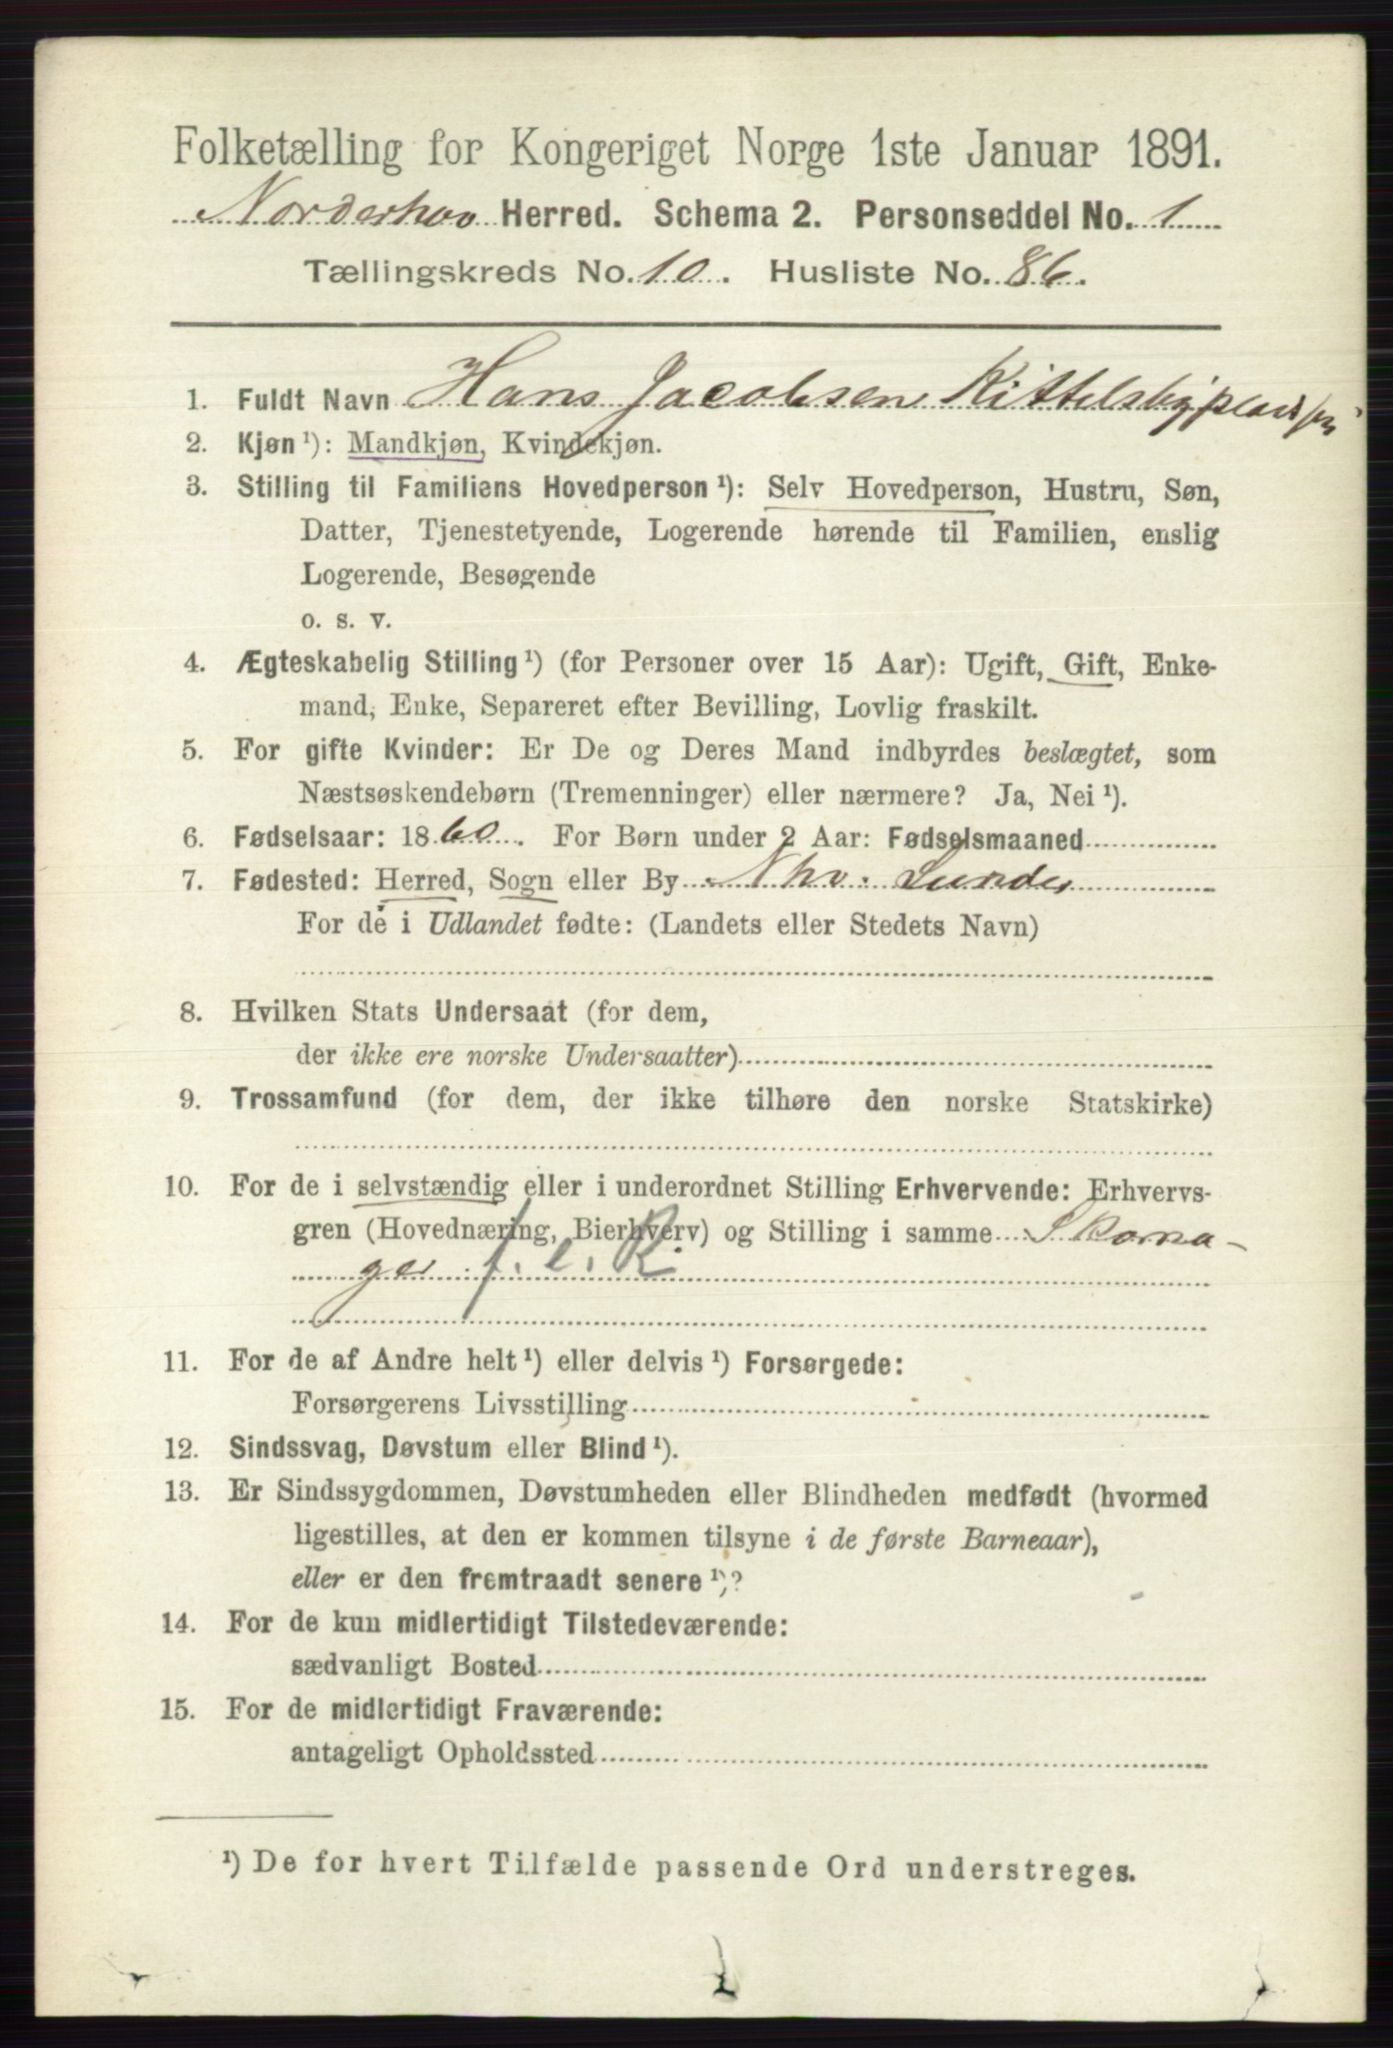 Folketælling for Kongeriget Norge 1ste Januar 1891.
Norderhov Herred. Schema 2. Personseddel No. 1
Tællingskreds No. 10. Husliste No. 86.
1. Fuldt Navn Hans Jacobsen Kittelsbypladsen
2. Kjøn ¹): Mandkjøn, Kvindekjøn.
3. Stilling til Familiens Hovedperson ¹): Selv Hovedperson, Hustru, Søn,
Datter, Tjenestetyende, Logerende hørende til Familien, enslig
Logerende, Besøgende
o. s. v.
4. Ægteskabelig Stilling ¹) (for Personer over 15 Aar): Ugift, Gift, Enke-
mand, Enke, Separeret efter Bevilling, Lovlig fraskilt.
5. For gifte Kvinder: Er De og Deres Mand indbyrdes beslægtet, som
Næstsøskendebørn (Tremenninger) eller nærmere? Ja, Nei ¹).
6. Fødselsaar: 1860. For Børn under 2 Aar: Fødselsmaaned
7. Fødested: Herred, Sogn eller By Nhv. Lunder
For de i Udlandet fødte: (Landets eller Stedets Navn)
8. Hvilken Stats Undersaat (for dem,
der ikke ere norske Undersaatter)
9. Trossamfund (for dem, der ikke tilhøre den norske Statskirke)
10. For de i selvstændig eller i underordnet Stilling Erhvervende: Erhvervs-
gren (Hovednæring, Bierhverv) og Stilling i samme Skoma-
ger f. e. R.
11. For de af Andre helt ¹) eller delvis ¹) Forsørgede:
Forsørgerens Livsstilling
12. Sindssvag, Døvstum eller Blind ¹).
13. Er Sindssygdommen, Døvstumheden eller Blindheden medfødt (hvormed
ligestilles, at den er kommen tilsyne i de første Barneaar),
eller er den fremtraadt senere ¹)?
14. For de kun midlertidigt Tilstedeværende:
sædvanligt Bosted
15. For de midlertidigt Fraværende:
antageligt Opholdssted
¹) De for hvert Tilfælde passende Ord understreges.